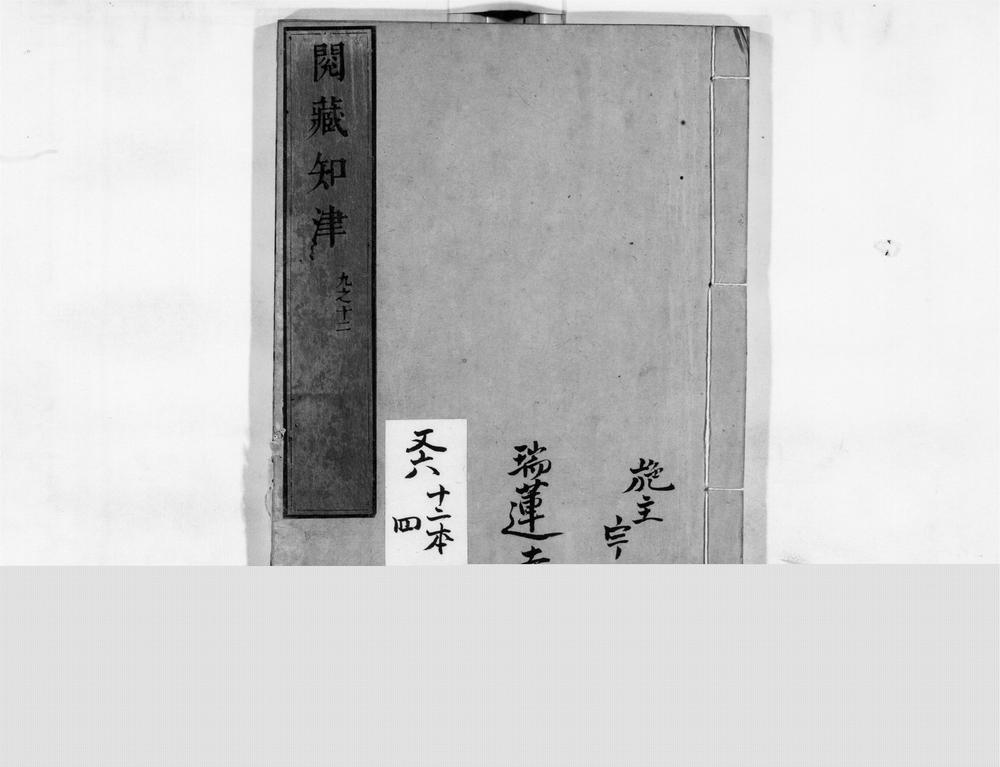 閱藏知津
九之十二
施主
瑞蓮寺
又六
十二本
四